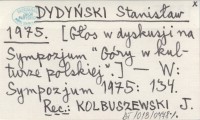 DYDYŃSKI Stanisław
1975. [Głos w dyskusji na
Sympozjum "Góry w kul-
turze polskiej".] — W:
Sympozjum 1975: 134.
Rec.: KOLBUSZEWSKI J.